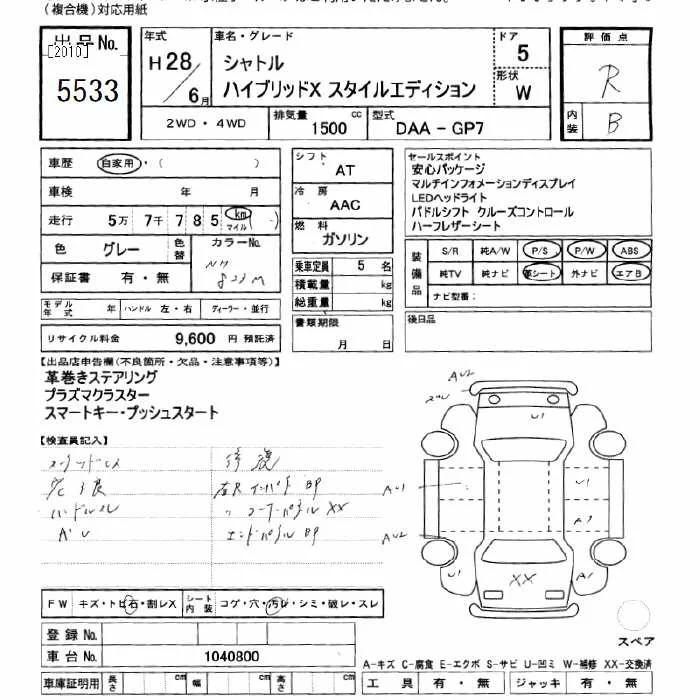 (複合機)対応用紙
出品No.
[2010]
5533
年式
H28/6月
車名・グレード
シャトル
ハイブリッドX スタイルエディション
ドア
5
形状
W
評価点
R
内装
B
2WD・4WD
排気量 1500 cc
型式 DAA-GP7
車歴 自家用・( )
車検 年 月
走行 5万 7千 7 8 5 km マイル ( )
色 グレー
色替
カラーNo.
NH
823M
保証書 有・無
モデル年式 年 ハンドル 左・右 ディーラー・並行
リサイクル料金 9,600 円 預託済
シフト
AT
冷房
AAC
燃料
ガソリン
乗車定員 5 名
積載量 kg
総重量 kg
書類期限
月 日
セールスポイント
安心パッケージ
マルチインフォメーションディスプレイ
LEDヘッドライト
パドルシフト クルーズコントロール
ハーフレザーシート
装備品
S/R 純A/W P/S P/W ABS
純TV 純ナビ 革シート 外ナビ エアB
ナビ型番:
後日品
【出品店申告欄(不良箇所・欠品・注意事項等)】
革巻きステアリング
プラズマクラスター
スマートキー・プッシュスタート
【検査員記入】
修復
ハンドルスレ
右R インパネ BP
〃 コーナーパネル XX
AU
エンドパネル BP
AU2
U1
AU1
U1
A1
AU2
U1
XX
A1
FW キズ・トビ石・割レX
シート内装 コゲ・穴・汚レ・シミ・破レ・スレ
登録No.
車台No. 1040800
車庫証明用 長さ cm 幅 cm 高さ cm
スペア
A-キズ C-腐食 E-エクボ S-サビ U-凹ミ W-補修 XX-交換済
工具 有・無 ジャッキ 有・無